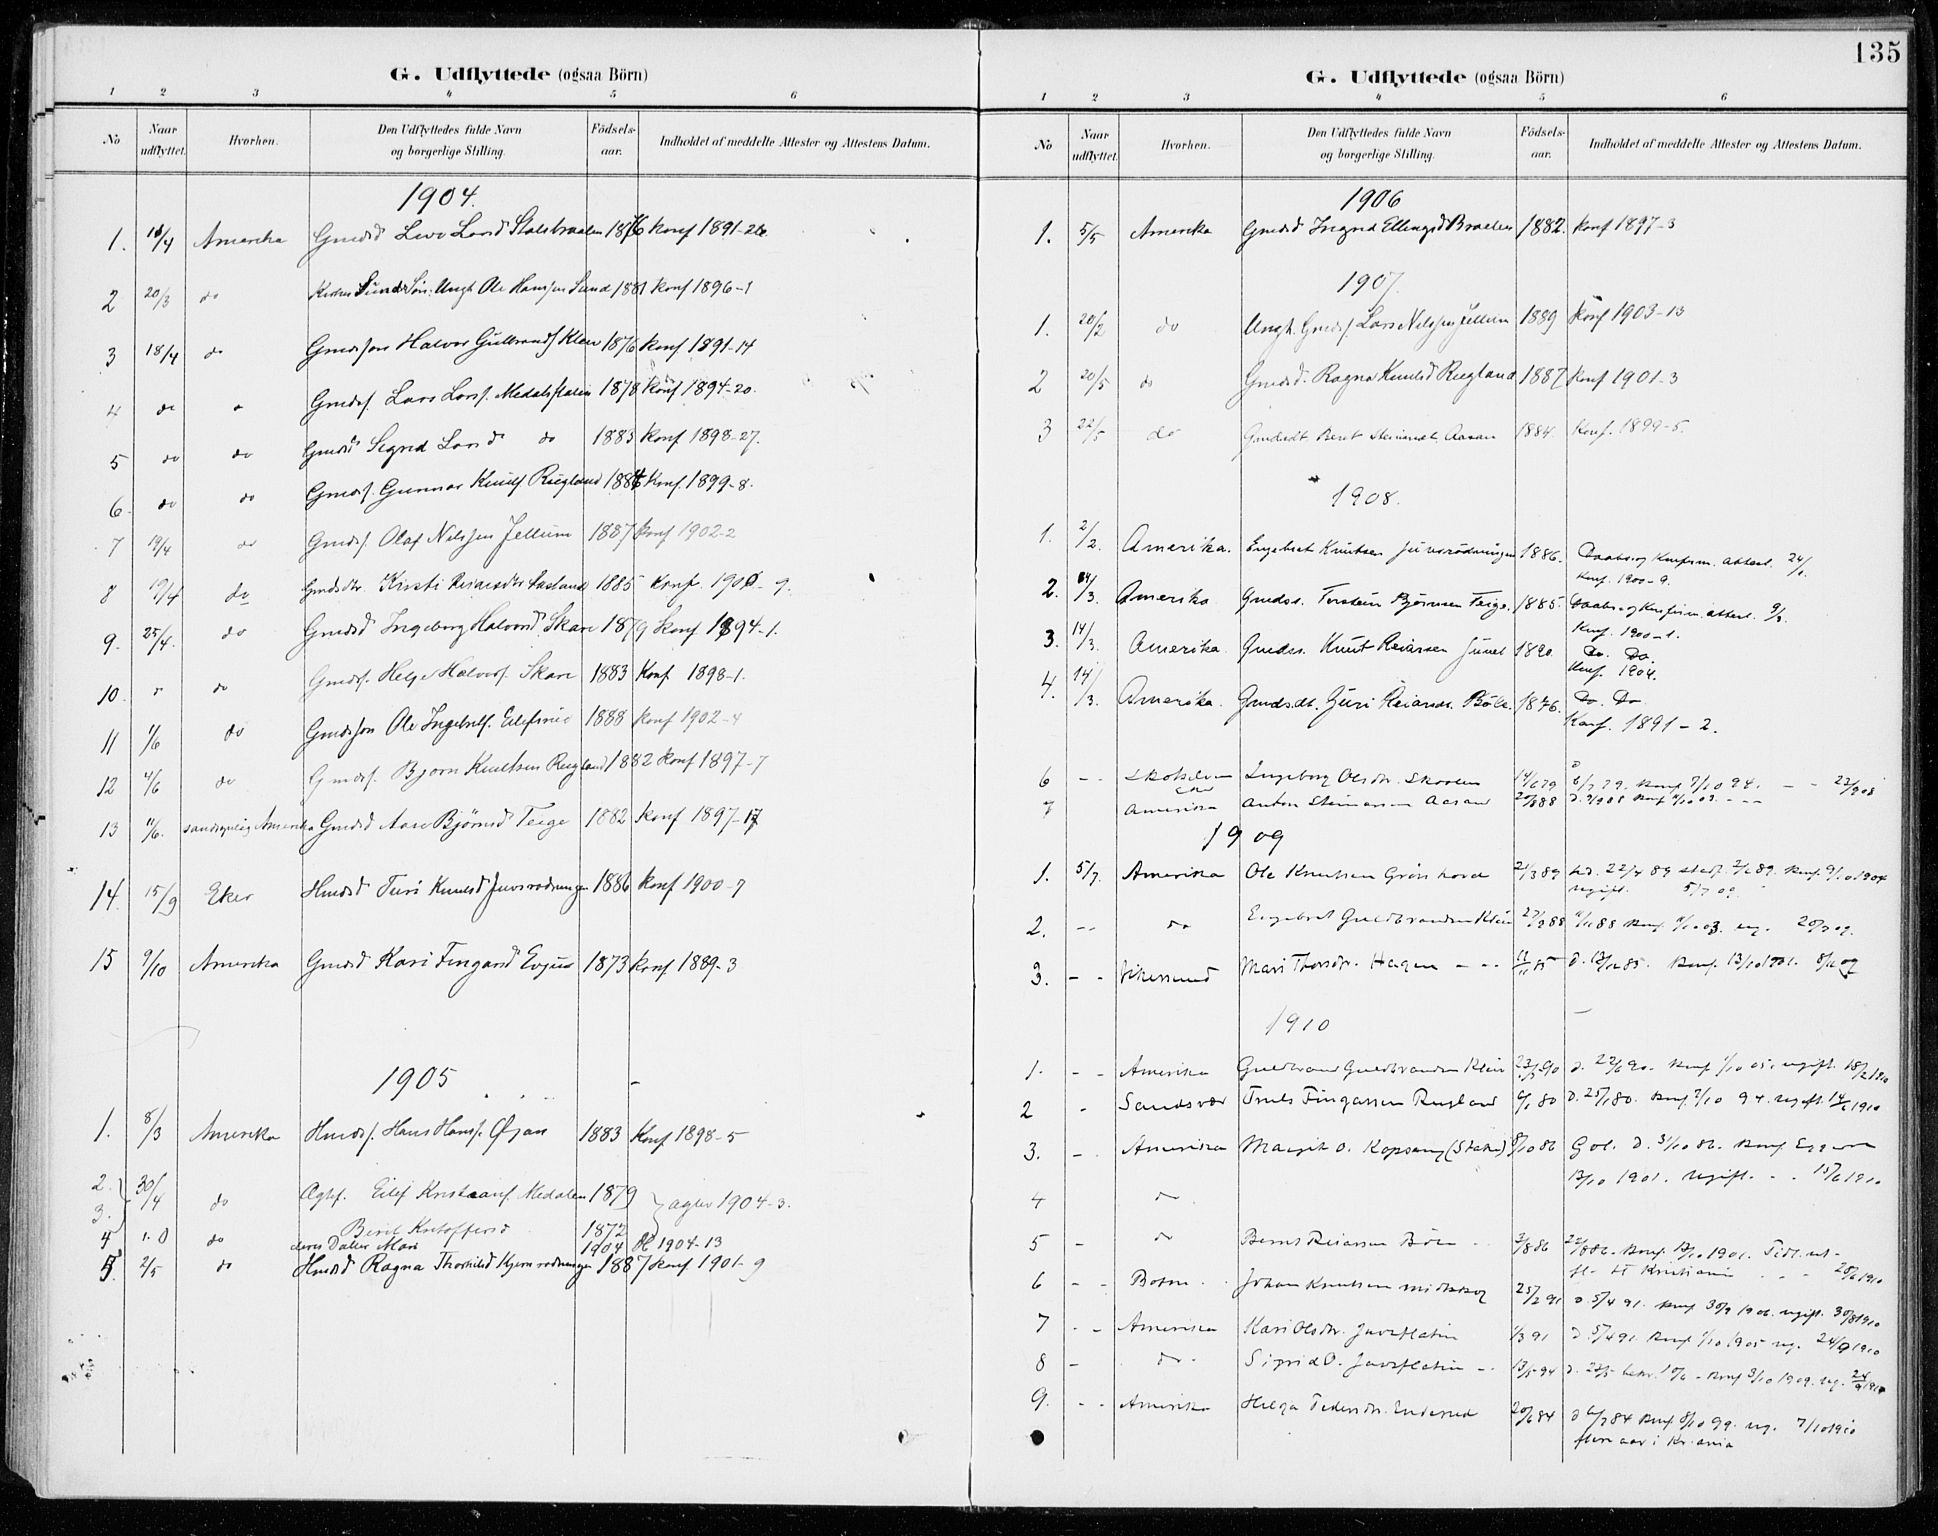 135
G. Udflyttede (ogsaa Börn)
1 2 3 4 5 6
No Naar udflyttet. Hvorhen. Den Udflyttedes fulde Navn og borgerlige Stilling. Födsels-aar. Indholdet af meddelte Attester og Attestens Datum.
1904.
1. 18/4 Amerika Gmdsd Live Larsd Stalsbraaten 1876 Konf 1891-26
2 20/3 do Ungk Ole Hansen Sund 1881 Konf 1896-1
3 18/4 do Gmdsson Halvor Gulbrands. Kleiv 1876 Konf 1891-14
4 do Gmdss. Lars Larss. Medalsstalin 1878 Konf 1894-20.
5 do do Gmdsd Segrid Larsd do 1883 Konf 1898-27.
6. do do Gmdss. Gunnar Knuts. Rugland 1884 Konf. 1899-8.
7 19/4 do Gmdss. Olaf Nilssen Jellum 1887 Konf 1902-2
8 19/4 do Gmdsdtr. Kirsti Reiarsdtr Aasland 1885 Konf. 1900-9.
9. 25/4. do Gmdsd Ingeborg Halvorsd Skare 1879 Konf 1894-1.
10. do Gmdss. Helge Halvors. Skare 1883 Konf 1898-1.
11 1/6 do Gmdsson Ole Ingebrets. 1888 Konf 1902-4
12 4/6 do Gmdss. Bjørn Knutsen Rugland 1882 Konf 1897-7
13 11/6. sandsynlig Amerika Gmdsd Aase Bjørnsd Teige 1882 Konf 1897-17
14. 15/9 Eker Hmdsd Turi Knutsd Juvsrødningen 1886 Konf 1900-7
15 9/10 Amerika Gmdsd Kari Fingarsd Evju 1873 Konf 1889-3
1905
1. 8/3 Amerika Hmdss. Hans Hanss. Øyan 1883 Konf 1898-5
2. 30/4 do Eilef Kristians. Medalen 1879
3. Berit Kristoffersd 1872 agtev 1904-3.
4 do deres Datter Mari 1904 1904-13
5. 2/5 do Hmdsd Ragna Thorkilsd Kjernrødningen 1887 Konf 1901-9
G. Udflyttede (ogsaa Börn)
1 2 3 4 5 6
No Naar udflyttet. Hvorhen. Den Udflyttedes fulde Navn og borgerlige Stilling. Födsels-aar. Indholdet af meddelte Attester og Attestens Datum.
1906
1. 5/5 Amerika Gmdsd Ingrid Ellingsd Braaten 1882. Konf 1897-3
1907.
1. 20/2 do Ungk. Gmdss. Lars Nilssen Jellum 1889 Konf 1903-13
2 20/5 do Gmdsd. Ragna Knutsd Rugland 1887 Konf 1901-3
3 22/5 do Gmdsdt. Beret Steinarsdt. Aasan 1884. Konf. 1899-5.
1908.
1. 2/2. Amerika. Engebret Knutsen Juvsrødningen 1886. Daabs og Konfirm. attest.
Konf. 1900-9.
2. 14/3. Amerika Gmdss. Torstein Bjørnsen Teige. 1885. Daabs og Konfirm. attest.
Konf. 1900-1.
3. 14/3. Amerika. Gmdss. Knut Reiarsen Juvet 1890 Do. Do.
Konf. 1904.
4. 14/3. Amerika. Gmdsdt. Guri Reiarsdt. Bøle. 1876. Do. Do
Konf. 1891-2.
6 -- Skotselven Eker Ingeborg Olsdtr. Skaalen 14/6 79 Konf 7/10 94. --
7 Amerika Anton Steinarsen Aasan Konf --
1909
1. 5/7. Amerika Ole Knutsen Grønhovd 24/3 89 Konf. 9/10 1904
ugift. 5/7 09.
2. -- do Engebret Guldbrandsen Kleiv Konf. 20/7 09.
3. -- Vikersund Mari Thorsdtr. Hagen -- D. 13/12 85. Konf. 13/10 1901.
1910
1. -- Amerika Guldbrand Guldbrandsen Kleiv 90 Konf 1/10 05. ugift. 18/2 1910
2 - Sandsvær Truls Fingarsen Rugland 80 D. 25/1 80. Konf. 7/10 94. ugift. 14/ 1910
3. - Amerika Margit O. Kopseng (Stake) 8/10 86 Gol. D. 31/10 86. Konf. Eggedal
13/10 1901. ugift. -- 15/6 1910
4 do
5 - do Bernt Reiarsen Bøle 2/8 86 Konf. 13/10 1901. Tidl. ut-
fl. til Kristiania -- 1910
6 -- Botne Johan Knutsen Midtskog 25/2 91 D. 5/4 91. Konf 30/9 1906. ugift. 30/8 1910
7 -- Amerika Kari Olsdtr. Juvsflatin 1/3 91 D. 5/4 91. Konf 1/10 1905 ug. 24/9 1910
8 - do Sigrid O. Juvsflatin -- 13/5 94 Konf 3/10 1909. ug. 24/9 1910
9. -- Amerika Helga Tedersdtr. Enderud 20/6 84 Konf. 8/10 99. ug. 7/10 1910
flere aar i Kr.ania